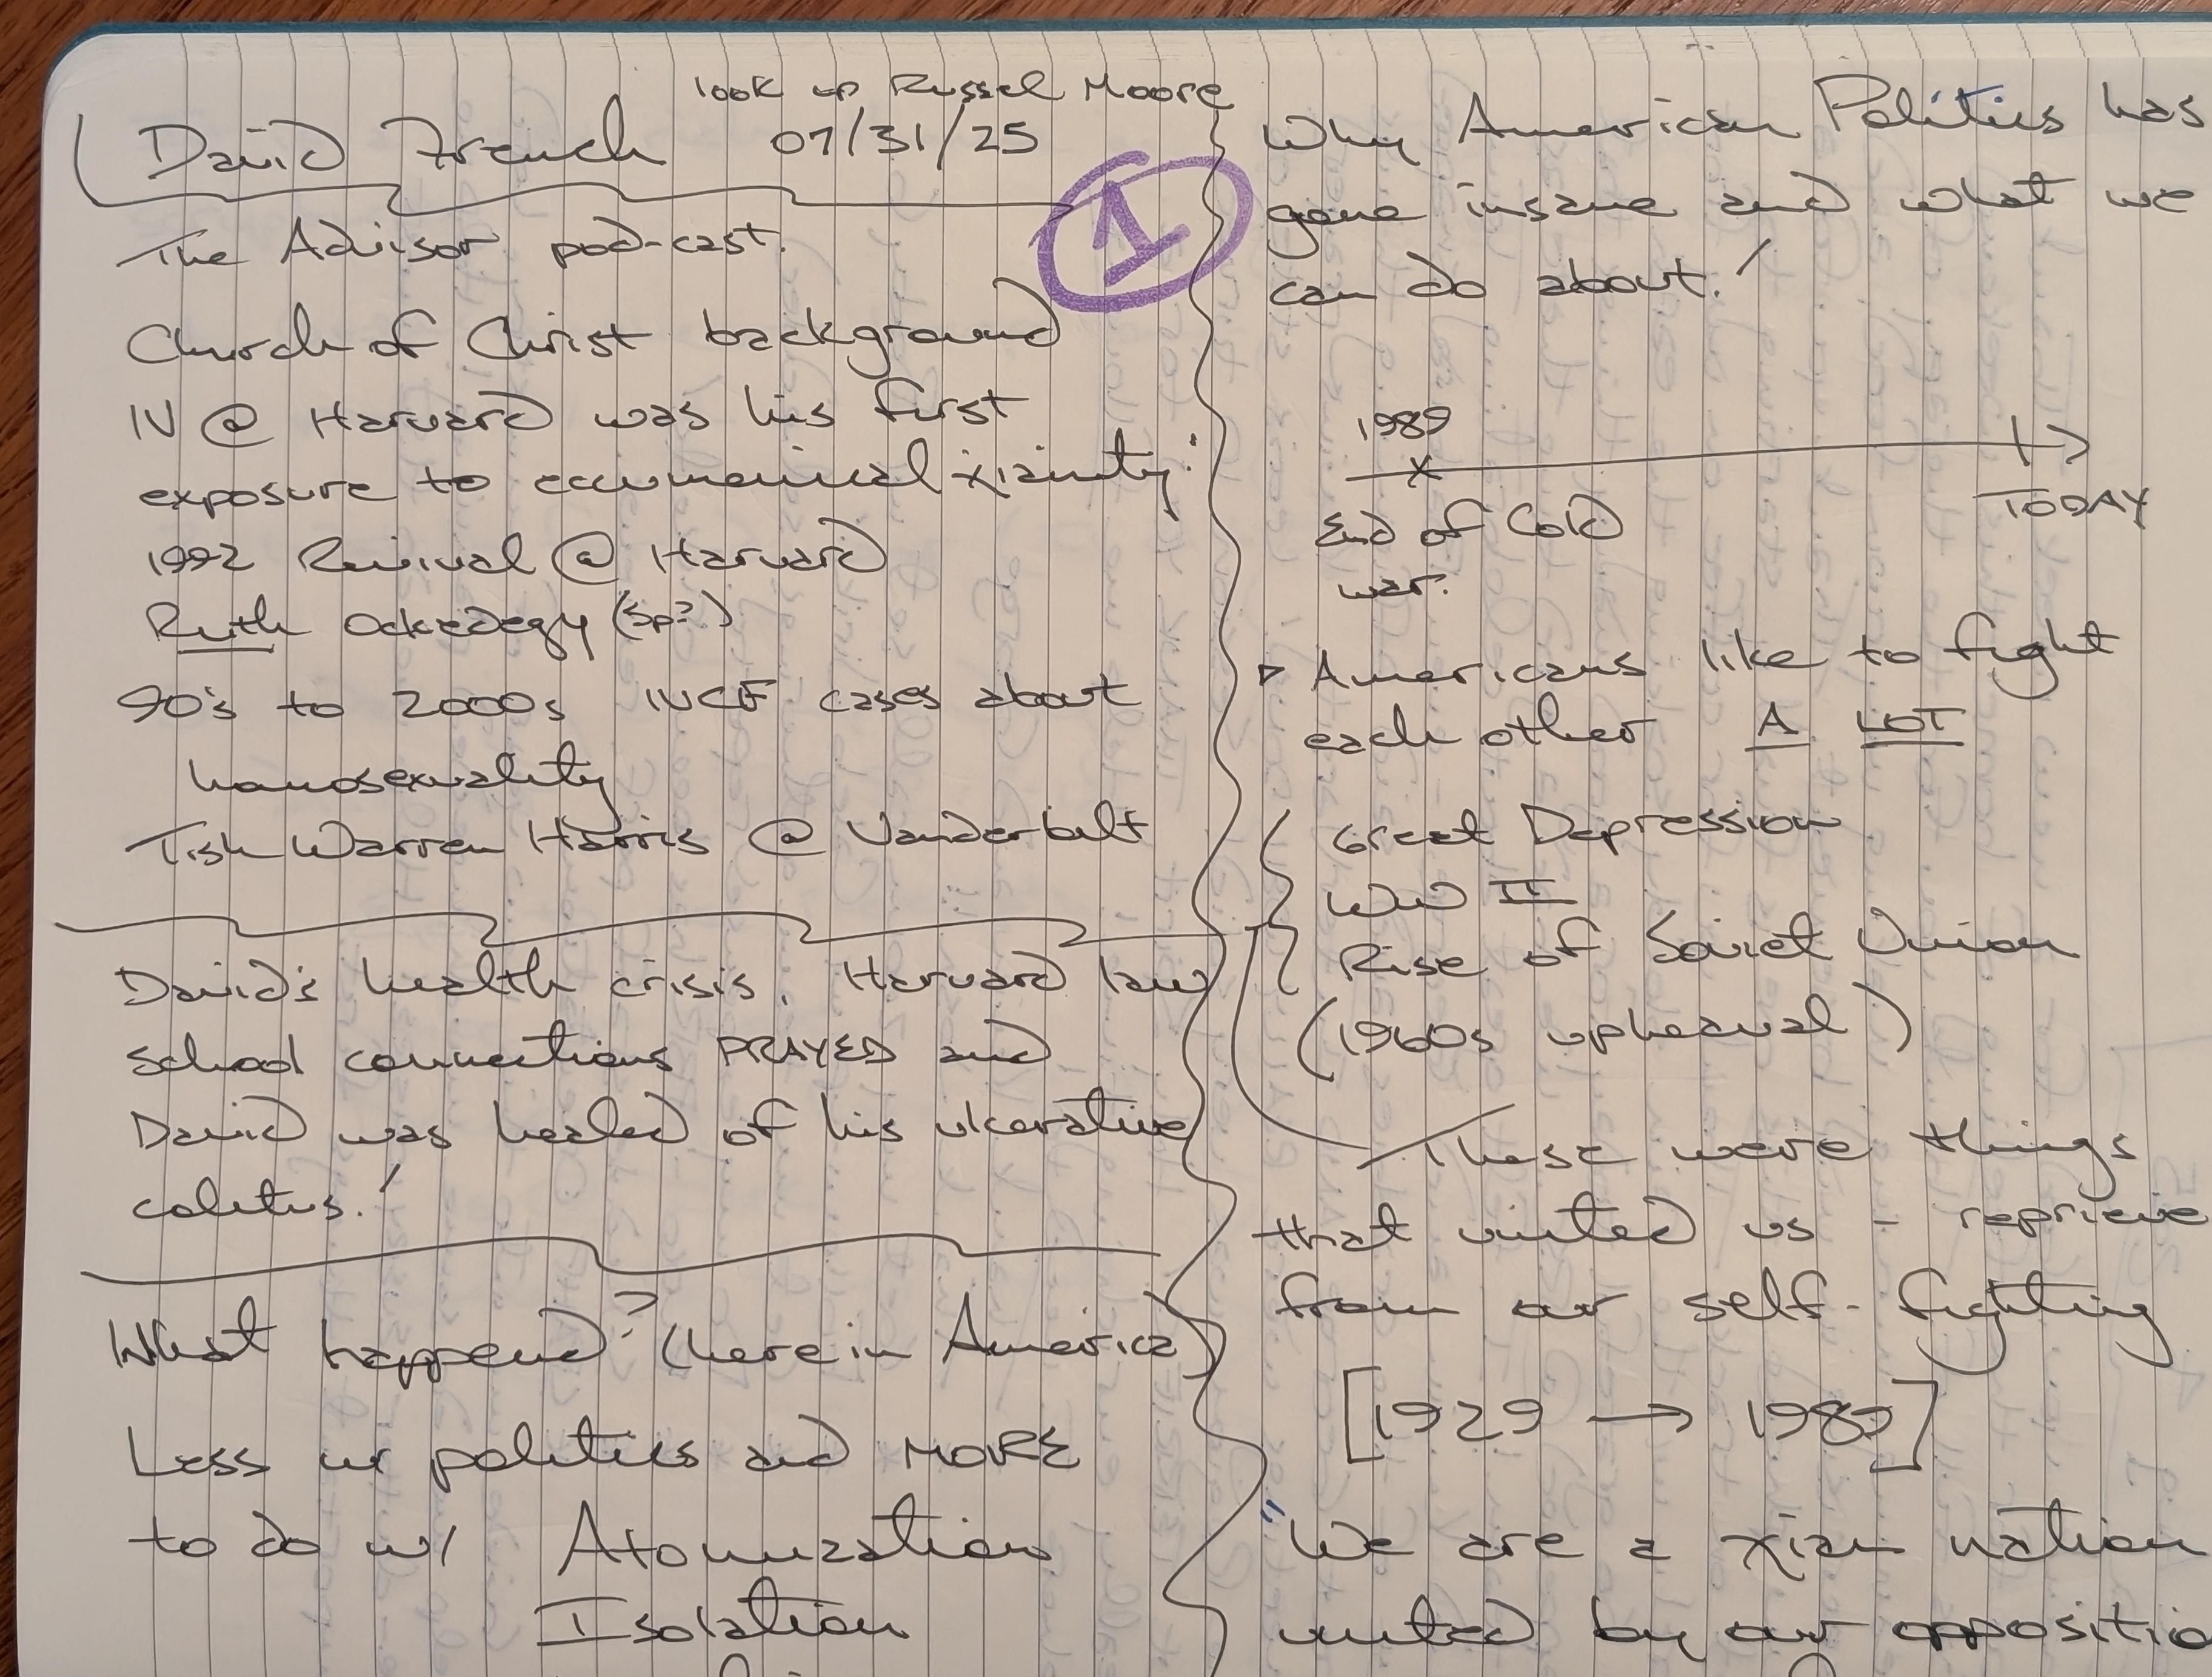 look up Russel Moore
David French 07/31/25
1
The Advisor pod-cast.
Church of Christ background
IV @ Harvard was his first
exposure to ecumenical xianity!
1992 Revival @ Harvard
Ruth Ockedegy (sp?)
90's to 2000s IVCF cases about
homosexuality
Tish Warren Harris @ Vanderbilt
David's health crisis. Harvard law
school connections PRAYED and
David was healed of his ulcerative
colitus!
What happend? (here in America)
Less w politics and MORE
to do w/ Atomization
Isolation
Why American Politics has
gone insane and what we
can do about!
1989
TODAY
End of Cold
war.
Americans like to fight
each other A LOT
Great Depression
WW II
Rise of Soviet Union
(1960s upheaval)
These were things
that united us - reprieve
from our self-fighting
[1929 → 1989]
"We are a xian nation
united by our oppositio